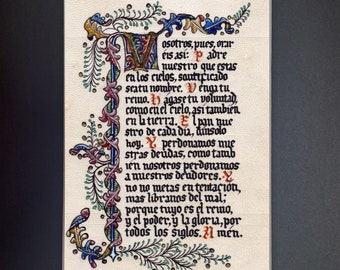 Vosotros, pues, orar
eis así: Padre
nuestro que estas
en los cielos, santificado
sea tu nombre. Venga tu
reino. Hágase tu voluntad,
como en el cielo, así también
en la tierra. El pan nue
stro de cada día, dánoslo
hoy. Y perdonamos nue
stras deudas, como tamb
ien nosotros perdonamos
a nuestros deudores. Y
no no metas en tentación,
mas libranos del mal;
porque tuyo es el reino,
y el poder, y la gloria, por
todos los siglos. Amen.